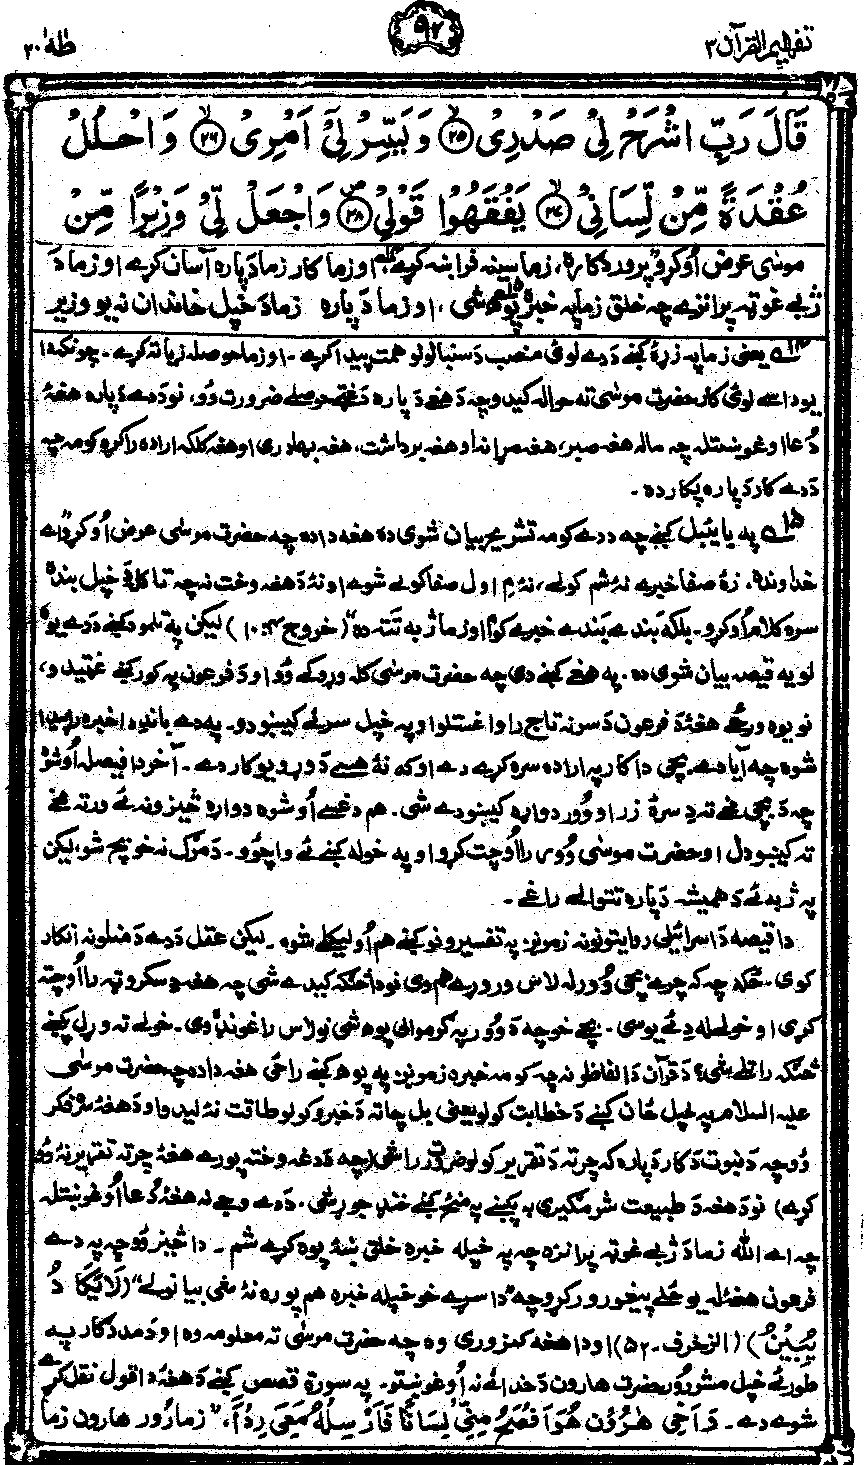 تفهیم القرآن ۳
۹۲
طٰهٰ ۲۰
قَالَ رَبِّ اشْرَحْ لِیْ صَدْرِیْ ﴿۲۵﴾ وَیَسِّرْ لِیْٓ اَمْرِیْ ﴿۲۶﴾ وَاحْلُلْ
عُقْدَةً مِّنْ لِّسَانِیْ ﴿۲۷﴾ یَفْقَهُوْا قَوْلِیْ ﴿۲۸﴾ وَاجْعَلْ لِّیْ وَزِیْرًا مِّنْ
موسٰی عرض اُوکړو پروردګاره، زما سینه فراخه کړے، اوزما کار زما دَپاره آسان کړے اوزما دَ
ژبے غوټه پرانزے چه خلق زما په خبره پوهه شی، اوزما دَپاره زما دَ خپل خاندان نه یو وزیر
یعنی زما په زړهٔ کښے دَدے لوئی منصب دَ سنبالولو همت پیدا کړے۔ اوزما حوصله زیاته کړے۔ چونکه دا
یو داسے لوئی کار حضرت موسٰی ته حواله کیدو چه دَهغے دَپاره دَ غټے حوصلے ضرورت وُو، نو دَدے دَپاره هغهٔ
دُعا اوغوښتله چه ماله هغه صبر، هغه اوهغه برداشت، هغه بهادری اوهغه کلکه اراده راکړه کومه چه
دَدے کار دَپاره پکار ده۔
۱۵ په بائیبل کښے چه ددے کومه تشریح بیان شوی ده هغه داده چه حضرت موسٰی عرض اُوکړو "اے
خداونده، زهٔ صفا خبرے نهٔ شم کولے، نهٔ مِ اول صفا کولے شوے اونهٔ دَهغه وخت نه چه تا کله دَ خپل بنده
سره کلام اُوکړو۔ بلکه بندے بندے خبرے کوم اوزما ژبه تته ده" (خروج ۴:۱۰) لیکن په تلمود کښے دَدے یوه
لویه قیصه بیان شوی ده. په هغے کښے دی چه حضرت موسٰی کله وړوکے وُو اودَ فرعون په کور کښے غټیدو،
نو یوه ورځے هغهٔ دَ فرعون دَ سر نه تاج را واغستلو اوپه خپل سر ئے کیښودو۔ په دے باندے خبره
شوه چه آیا دے بچی دا کار په اراده سره کړے دے اوکه نهٔ هسے دَ وړو یو کار دے۔ آخر دا فیصله اُوشوه
چه دَ بچی مخے ته دِ سرهٔ زر او وُور دواړه کیښودے شی۔ هم دغسے اُوشوه دواړه څیزونه ئے ورته مخے
ته کیښودل اوحضرت موسٰی وُور را اُوچت کړو اوپه خوله کښے ئے واچوو۔ دَ مرګ نه خو بچ شو، لیکن
په ژبه ئے دَ همیشه دَپاره تتوالے راغے۔
دا قیصه دَ اسرائیلی روایتونو نه زمونږ په تفسیرونو کښے هم اُولیکلے شوه۔ لیکن عقل دَدے دَ منلو نه انکار
کوی۔ ځکه چه که چرے بچی وُور له لاس وروړے هم وی نو دا څنګه کیدے شی چه هغه دِ سکروټه را اُوچته
کړی اوخولے له دِ ئے یوسی۔ بچے خو چه دَ وُور په ګرموالی پوهه شی نو لاس راغونډوی۔ خولے ته وړل پکښے
څنګه راتلے شی؟ دَ قرآن دَ الفاظو نه چه کومه خبره زمونږ په پوهه کښے راځی هغه داده چه حضرت موسٰی
علیه السلام په خپل ځان کښے دَ خطابت کولو یعنی بل چاته دَ خبرو کولو طاقت نهٔ لیدو اودَهغهٔ سره فکر
وُو چه دَ نبوت دَ کار دَپاره که چرته دَ تقریر کولو ضرورت راشی (چه دَ دغه وخته پورے هغهٔ چرته تقریر نهٔ وُو
کړے) نو دَهغه دَ طبیعت شرمګیری به پکښے په منځ کښے خنډ جوړ شی. دَدے وجے نه هغهٔ دُعا اُوغوښتله
چه اے الله زما دَ ژبے غوټه پرانزه چه په خپله خبره خلق ښهٔ پوه کړے شم۔ دا څیز وُو چه په دے
فرعون هغهٔ له یو ځلے پیغور ورکړو چه "دا سړے خو خپله خبره هم پوره نهٔ شی بیانولے" (لَا یَکَادُ
یُبِیْنُ) (الزخرف۔ ۵۲) اودا هغه کمزوری وه چه حضرت موسٰی ته معلومه وه اودَ مددګار په
طور ئے خپل مشر وُرور حضرت هارون دَ خدائے نه اُوغوښتو۔ په سورة قصص کښے دَهغهٔ دا قول نقل کړے
شوے دے۔ وَاَخِیْ هٰرُوْنُ هُوَ اَفْصَحُ مِنِّیْ لِسَانًا فَاَرْسِلْهُ مَعِیَ رِدْاً، "زما رُور هارون زما